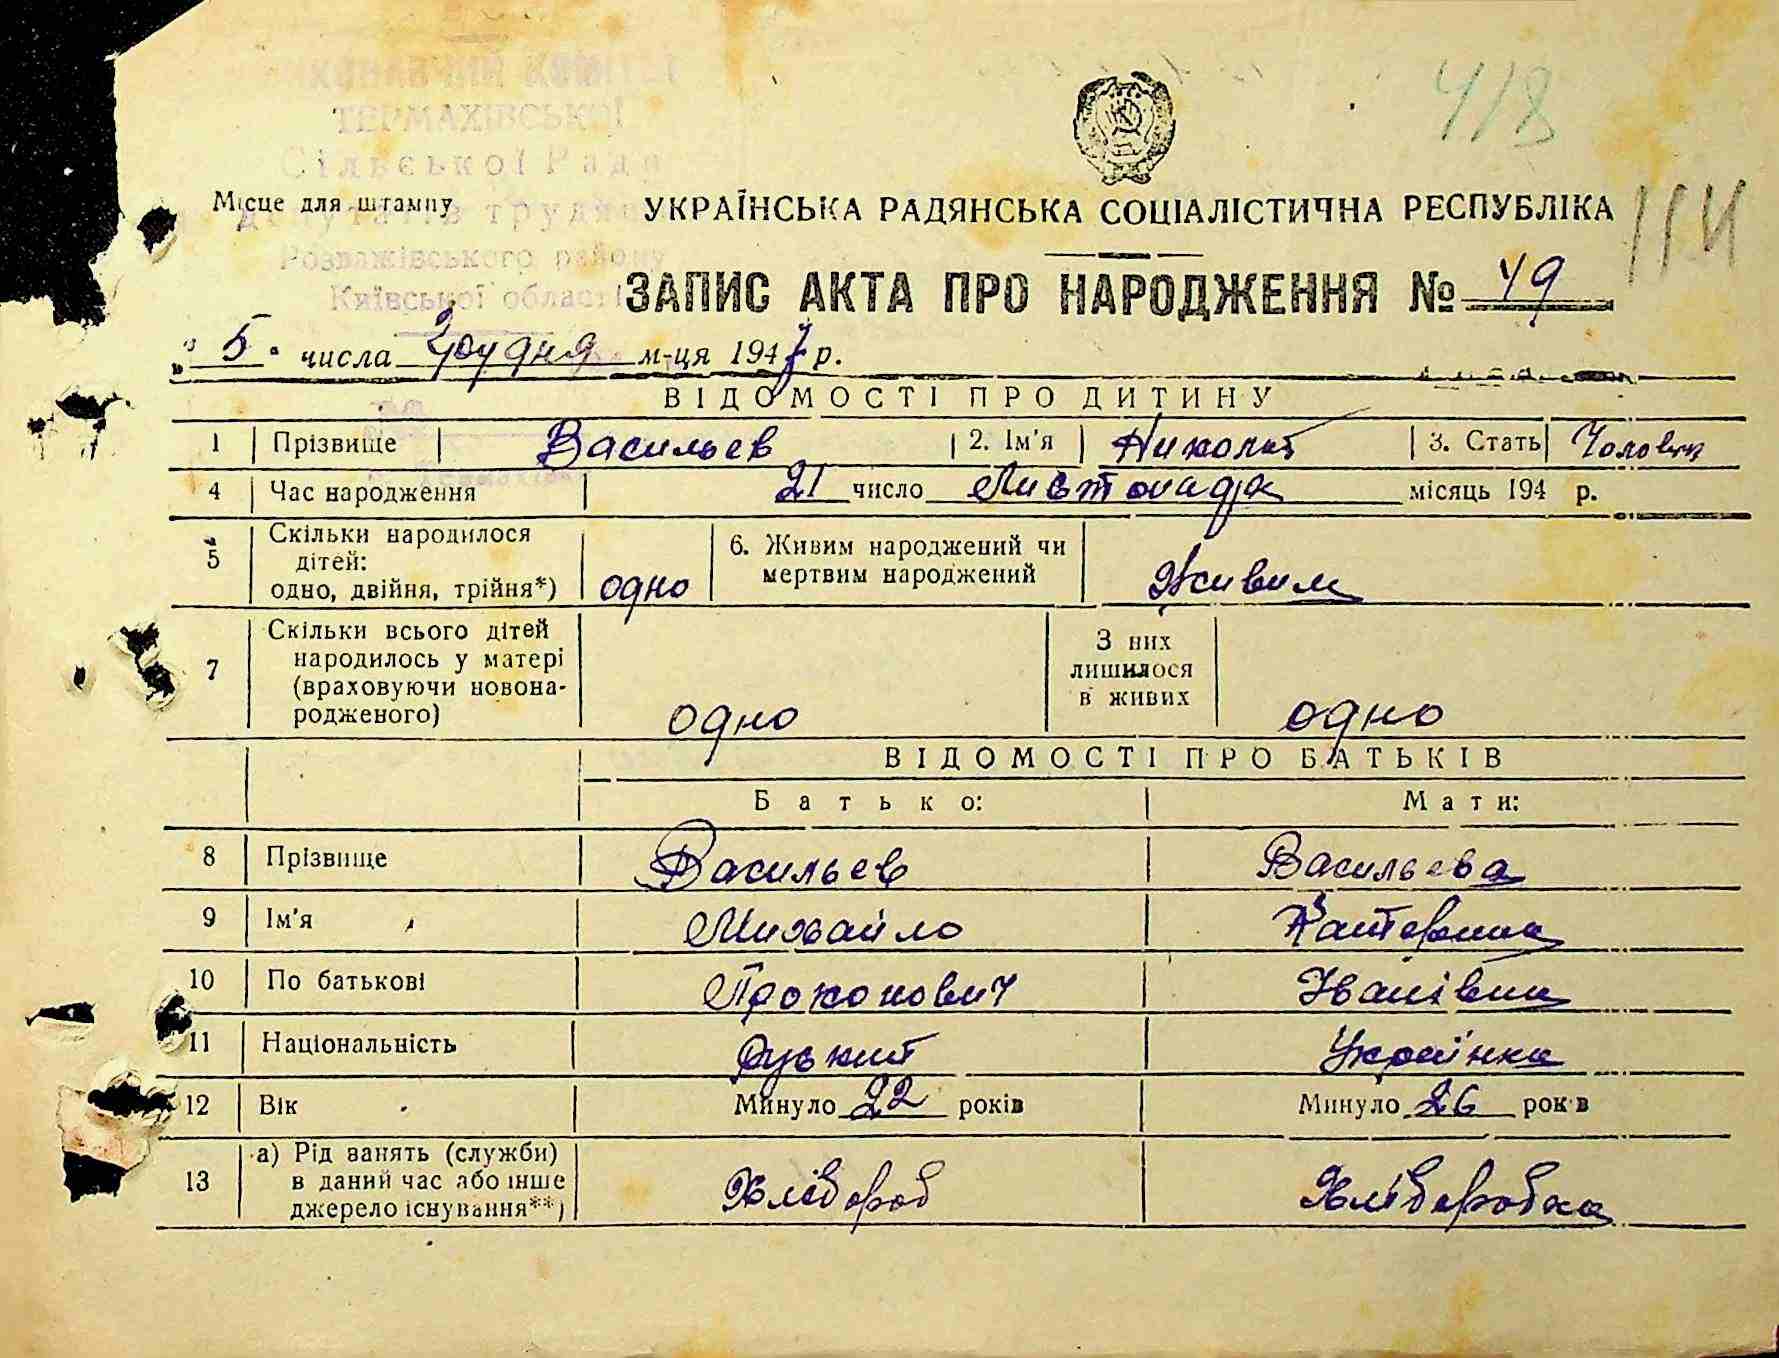 ТЕРМАХІВСЬКОЇ
Сільської Рад
Розважівського району
Київської області
418
Місце для штампу
УКРАЇНСЬКА РАДЯНСЬКА СОЦІАЛІСТИЧНА РЕСПУБЛІКА
ЗАПИС АКТА ПРО НАРОДЖЕННЯ № 49
„ 5 " числа Грудня м-ця 1947 р.
ВІДОМОСТІ ПРО ДИТИНУ
1 Прізвище Васильев 2. Ім'я Николай 3. Стать Чолович
4 Час народження 21 число Листопада місяць 194 р.
5 Скільки народилося дітей: одно, двійня, трійня*) одно 6. Живим народжений чи мертвим народжений Живим
7 Скільки всього дітей народилось у матері (враховуючи новонародженого) одно З них лишилося в живих одно
ВІДОМОСТІ ПРО БАТЬКІВ
Батько: Мати:
8 Прізвище Васильев Васильева
9 Ім'я Михайло Катерина
10 По батькові Прокопович Іванівна
11 Національність Руський Українка
12 Вік Минуло 22 років Минуло 26 років
13 а) Рід занять (служби) в даний час або інше джерело існування**) Хлібороб Хліборобка